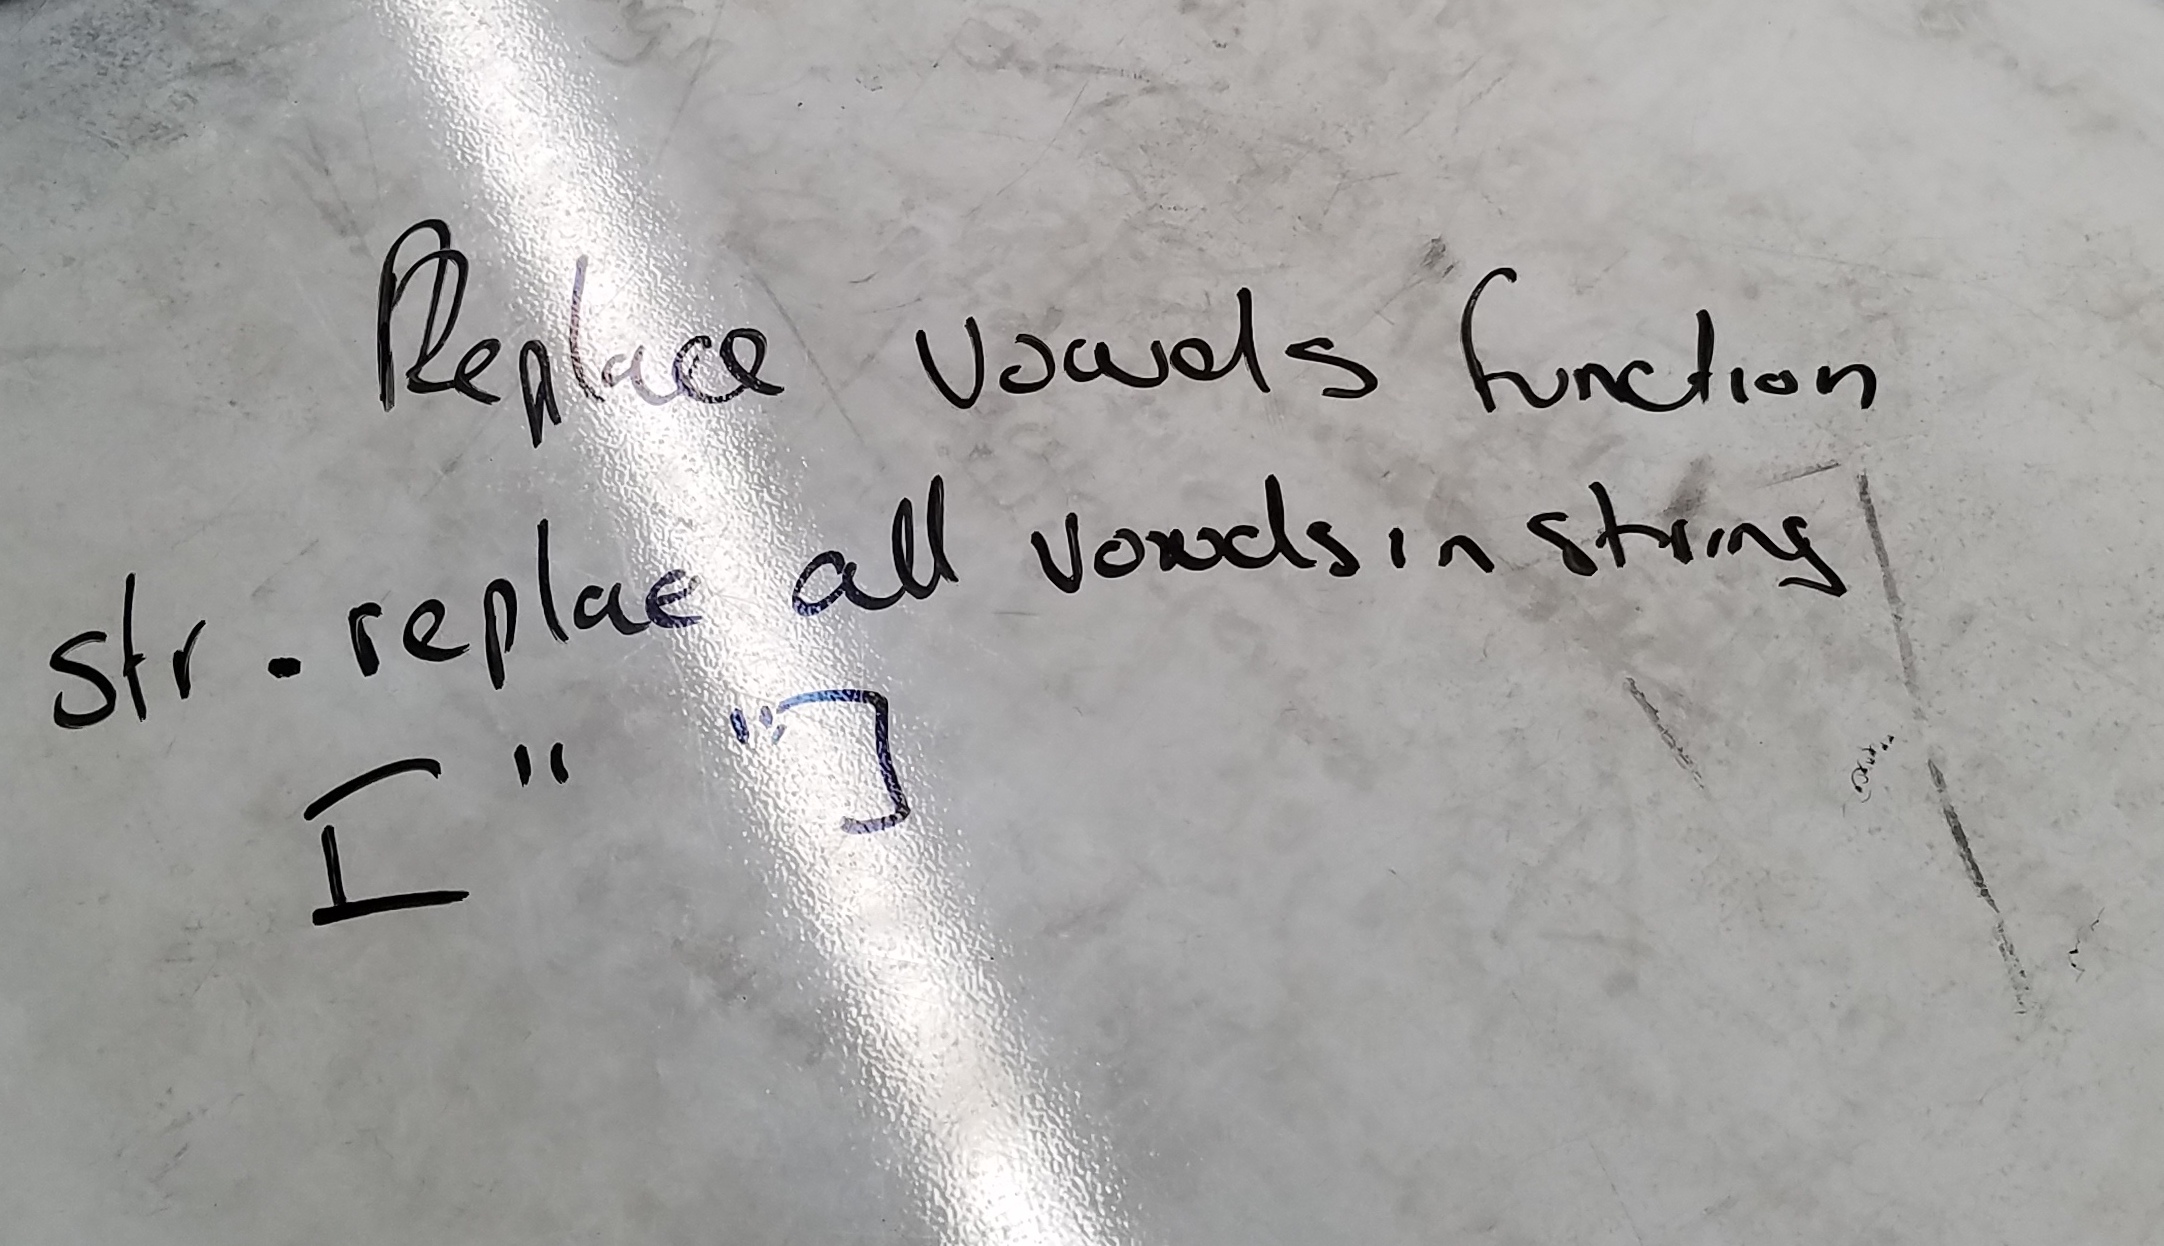 Replace vowels function
str.replae all vowels in string
[" "]